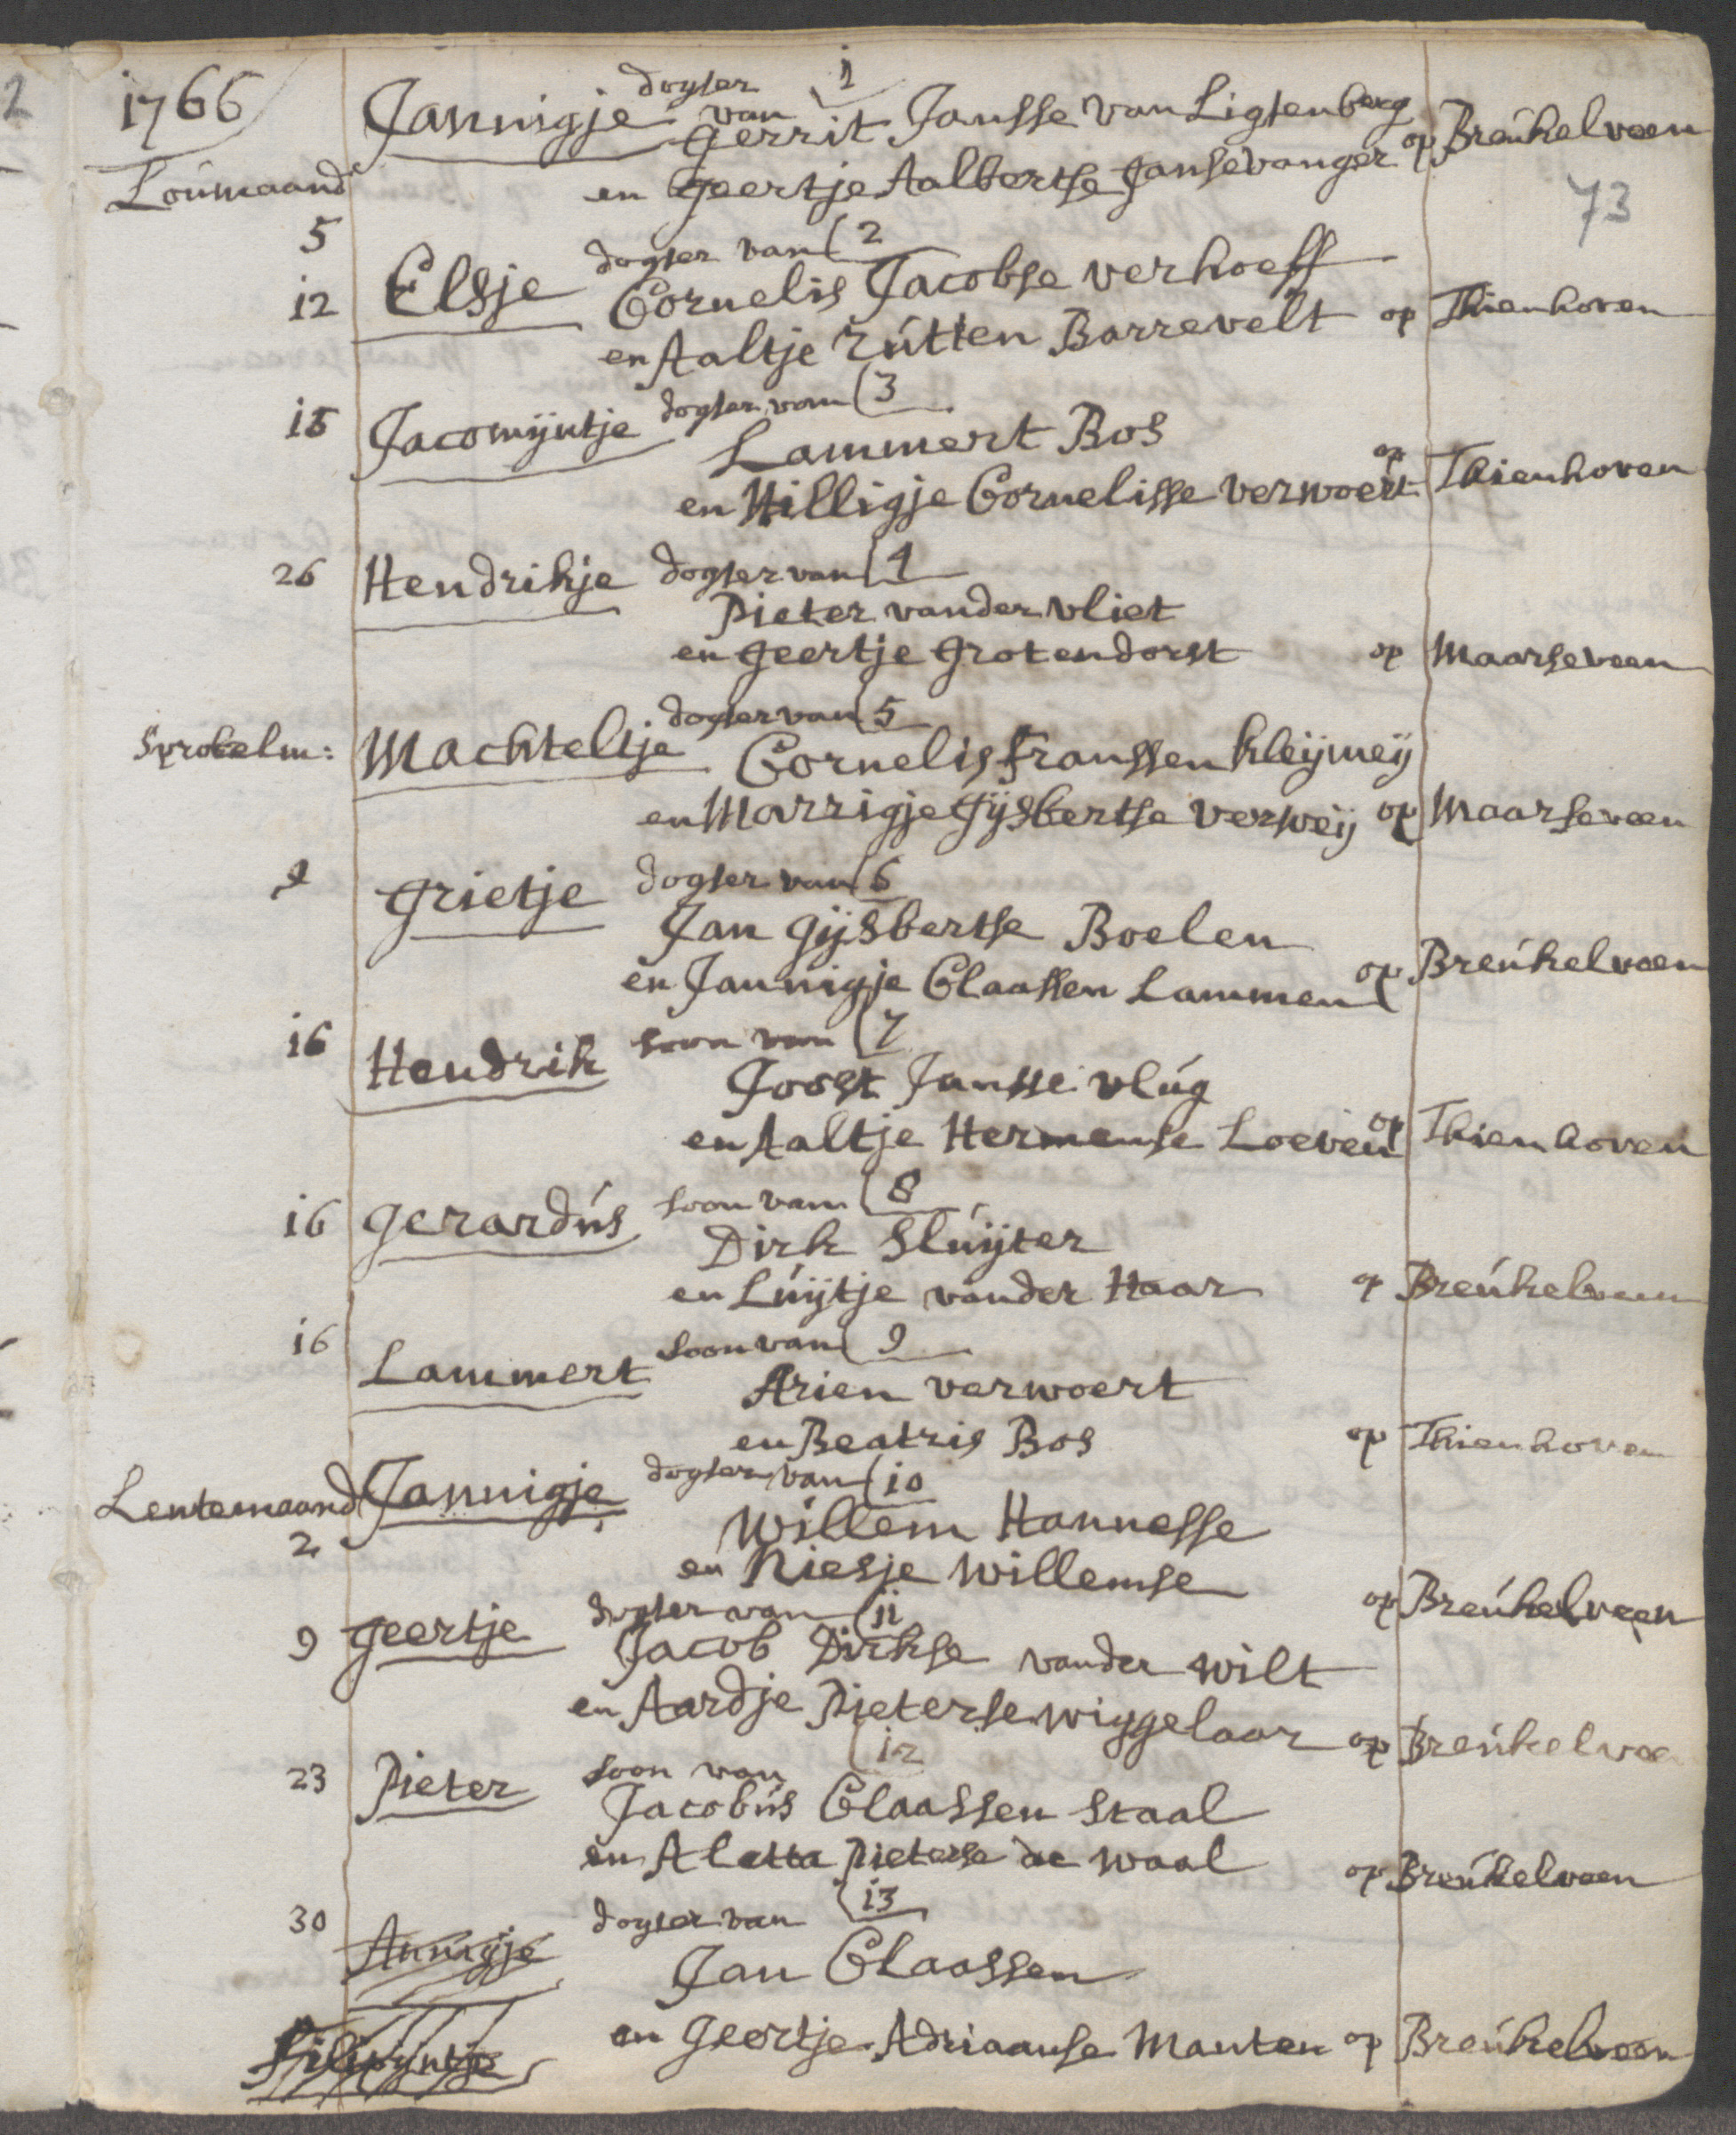 2
1766
Loúmaand
73
dogter van 1
Jannigje Gerrit Jansse van Ligtenberg
en geertje Aalbertse Jansevanger op Breúkelveen
5
dogter van 2
12 Elsje Cornelis Jacobse verhoeff
en Aaltje Rútten Barrevelt op Thienhoven
dogter van 3
Jacomijntje
Lammert Bos
en Willigje Cornelisse verwoert op Thienhoven
26 Hendrikje dogter van 4
Pieter vander vliet
en geertje grotendorst op Maarseveen
dogter van 5
Sprokelm: Machteltje Cornelis franssen kleijmeij
en Marrigje Gijsbertse verweij op Maarseveen
dogter van 6
grietje
Jan gijsbertse Boelen
en Jannigje Claassen Lammen op Breúkelveen
16 Hendrik soon van 7
Joost Jansse vlúg
en Aaltje Hermense Loeven op Thienhoven
16 gerardús soon van 8
Dirk Slúijter
en Lúijtje vander Haar op Breúkelveen
16 Lammert soon van 9
Arien verwoert
en Beatris Bos op Thienhoven
Lentemaand Jannigje dogter van 10
2 Willem Hannesse
en Niesje Willemse op Breúkelveen
9 geertje dogter van 11
Jacob Dirkse vander Wilt
en Aardje Pieterse wiggelaar op Breúkelvee
12
23 Pieter soon van
Jacobús Claassen Staal
en Aletta Pieterse de Waal op Breúkelveen
30 Annigje dogter van 13
Jan Claassen
Filipijntje en Geertje Adriaanse Manten op Breúkelveen